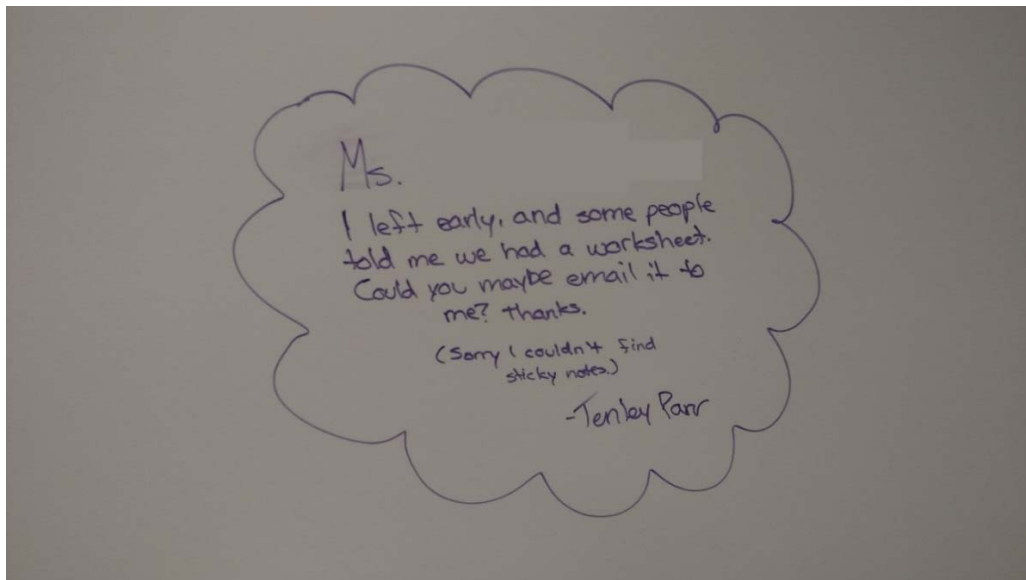 Ms.
I left early, and some people
told me we had a worksheet.
Could you maybe email it to
me? Thanks.
(Sorry I couldn't find
sticky notes.)
-Tenley Parr